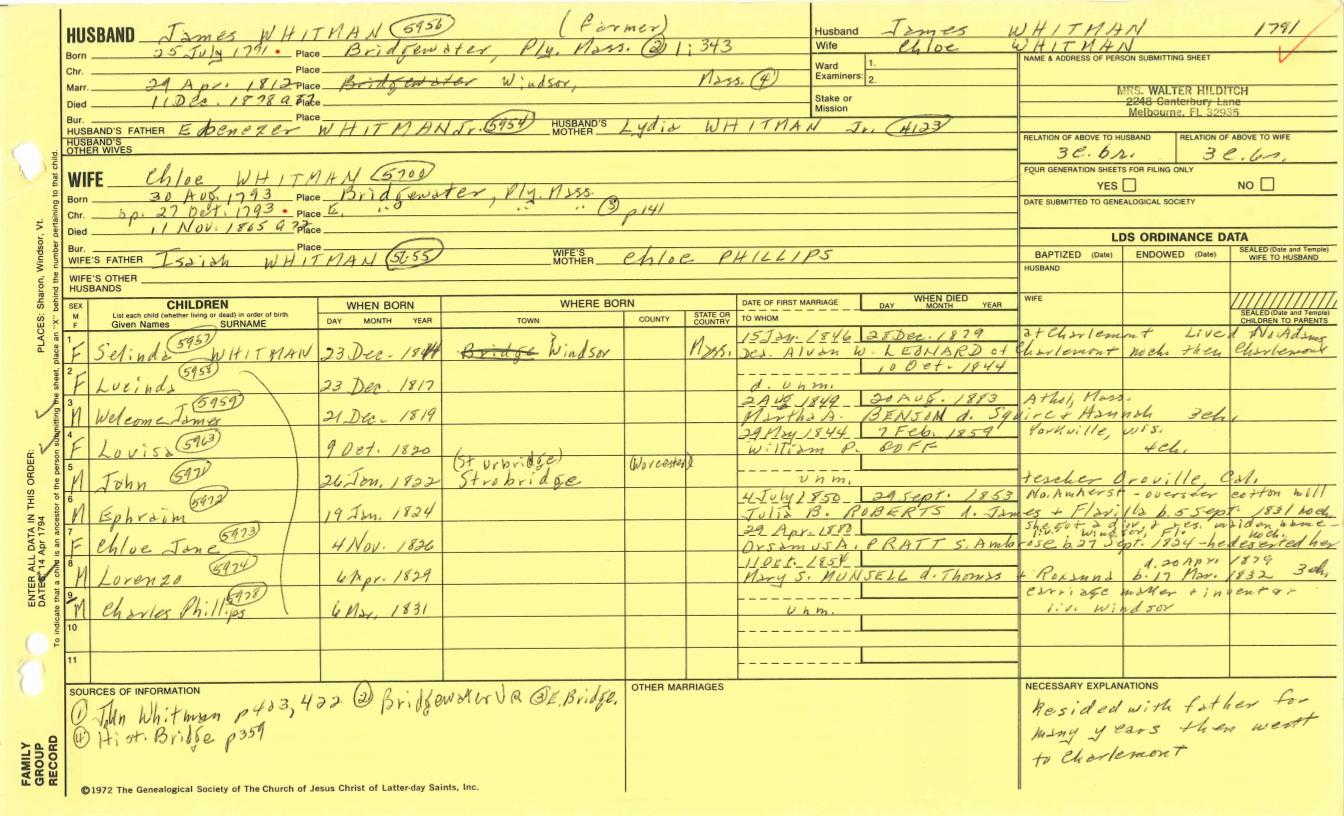 HUSBAND James WHITMAN (5956) (Farmer)
Born 25 July 1791 Place Bridgewater, Ply. Mass. (2) 1; 343
Chr. Place
Marr. 29 Apr. 1812 Place Bridgewater Windsor, Mass. (4)
Died 11 Dec. 1878 a 87 Place
Bur. Place
HUSBAND'S FATHER Ebenezer WHITMAN Jr. (5954) HUSBAND'S MOTHER Lydia WHITMAN Jr. (4123)
HUSBAND'S OTHER WIVES
WIFE Chloe WHITMAN (5700)
Born 30 Aug 1793 Place Bridgewater, Ply. Mass.
Chr. bp. 27 Oct. 1793 Place E. " " " (3) p141
Died 11 Nov. 1865 a 72 Place
Bur. Place
WIFE'S FATHER Isaiah WHITMAN (5655) WIFE'S MOTHER Chloe PHILLIPS
WIFE'S OTHER HUSBANDS
Husband James WHITMAN 1791
Wife Chloe WHITMAN
Ward Examiners: 1. 2.
Stake or Mission
NAME & ADDRESS OF PERSON SUBMITTING SHEET
MRS. WALTER HILDITCH
2248 Canterbury Lane
Melbourne, FL 32935
RELATION OF ABOVE TO HUSBAND RELATION OF ABOVE TO WIFE
3c.br. 3c.br.
FOUR GENERATION SHEETS FOR FILING ONLY
YES NO
DATE SUBMITTED TO GENEALOGICAL SOCIETY
LDS ORDINANCE DATA
BAPTIZED (Date) ENDOWED (Date) SEALED (Date and Temple) WIFE TO HUSBAND
HUSBAND
WIFE
SEALED (Date and Temple) CHILDREN TO PARENTS
SEX M F CHILDREN List each child (whether living or dead) in order of birth Given Names SURNAME WHEN BORN DAY MONTH YEAR WHERE BORN TOWN COUNTY STATE OR COUNTRY DATE OF FIRST MARRIAGE TO WHOM WHEN DIED DAY MONTH YEAR
1 F Selinda (5957) WHITMAN 23 Dec. 1814 Bridge Windsor Mass. 15 Jan. 1846 28 Dec. 1879 at Charlemont Lived No. Adams
Dea. Alvan W. LEONARD of Charlemont noch. then Charlemont
2 F Lucinda (5958) 23 Dec. 1817 10 Oct. 1844
d. unm.
3 M Welcome James (5959) 21 Dec. 1819 2 Aug 1849 20 Aug. 1883 Athol, Mass.
Martha A. BENSON d. Squire + Hannah 3ch.
4 F Louisa (5963) 9 Oct. 1820 29 May 1844 7 Feb. 1859 Yorkville, Wis.
William P. GOFF 4ch.
5 M John (5971) 26 Jan. 1822 (Sturbridge) Strobridge (Worcester) unm. teacher Oroville, Cal.
6 M Ephraim (5972) 19 Jan. 1824 4 July 1850 29 Sept. 1853 No. Amherst - overseer cotton mill
Julia B. ROBERTS d. James + Florilla b. 5 Sept. 1831 noch
7 F Chloe Jane (5973) 4 Nov. 1826 29 Apr. 1852 she got a div. & res. maiden name
liv. Windsor, noch.
Orsamus A. PRATT s. Ambrose b. 27 Sept. 1824 - he deserted her
8 M Lorenzo (5974) 6 Apr. 1829 11 Oct. 1854 d. 20 Apr. 1879
Mary S. MUNSELL d. Thomas + Roxanna b. 17 Mar. 1832 3ch
9 M Charles Phillips (5978) 6 Mar. 1831 unm. carriage maker + inventor
liv. Windsor
10
11
SOURCES OF INFORMATION
(1) John Whitman p423, 422 (2) Bridgewater VR (3) E. Bridge.
(4) Hist. Bridge p359
OTHER MARRIAGES
NECESSARY EXPLANATIONS
Resided with father for
many years then went
to Charlemont
©1972 The Genealogical Society of The Church of Jesus Christ of Latter-day Saints, Inc.
FAMILY GROUP RECORD
ENTER ALL DATA IN THIS ORDER:
DATES: 14 Apr 1794 PLACES: Sharon, Windsor, Vt.
To indicate that a child is an ancestor of the person submitting the sheet, place an "X" behind the number pertaining to that child.